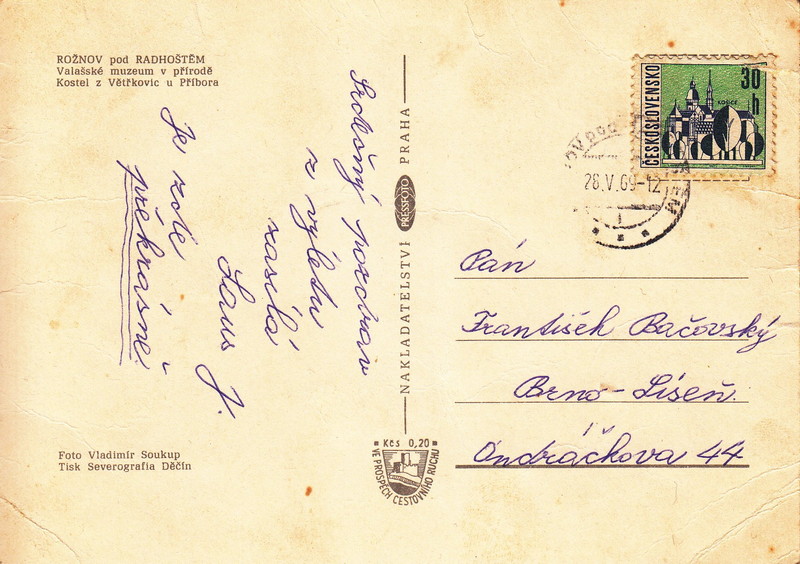 ROŽNOV pod RADHOŠTĚM
Valašské muzeum v přírodě
Kostel z Větřkovic u Příbora
Srdečný pozdrav
z výletu
zasílá
Laus J.
Je zde
překrásně
Foto Vladimír Soukup
Tisk Severografia Děčín
NAKLADATELSTVÍ PRESSFOTO PRAHA
Kčs 0,20
VE PROSPĚCH CESTOVNÍHO RUCHU
ČESKOSLOVENSKO
30 h
KOŠICE
28.V.69-12
1
Pán
František Bačovský
Brno-Líšeň
Ondráčkova 44